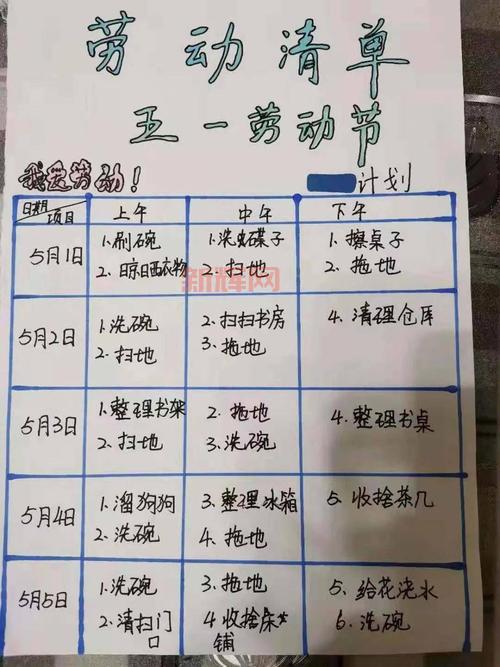 劳动清单
五一劳动节
我爱劳动！
计划
日期 项目 上午 中午 下午
5月1日 1.刷碗 1.洗碟子 1.擦桌子
2.晾晒衣物 2.扫地 2.拖地
新辉网
5月2日 1.洗碗 2.扫扫书房 4.清理仓库
2.扫地 3.拖地
5月3日 1.整理书架 2.拖地 4.整理书桌
2.扫地 3.洗碗
5月4日 1.溜狗狗 3.整理冰箱 5.收捨茶几
2.洗碗 4.拖地
5月5日 1.洗碗 3.拖地 5.给花浇水
2.清扫门口 4.收捨床铺 6.洗碗